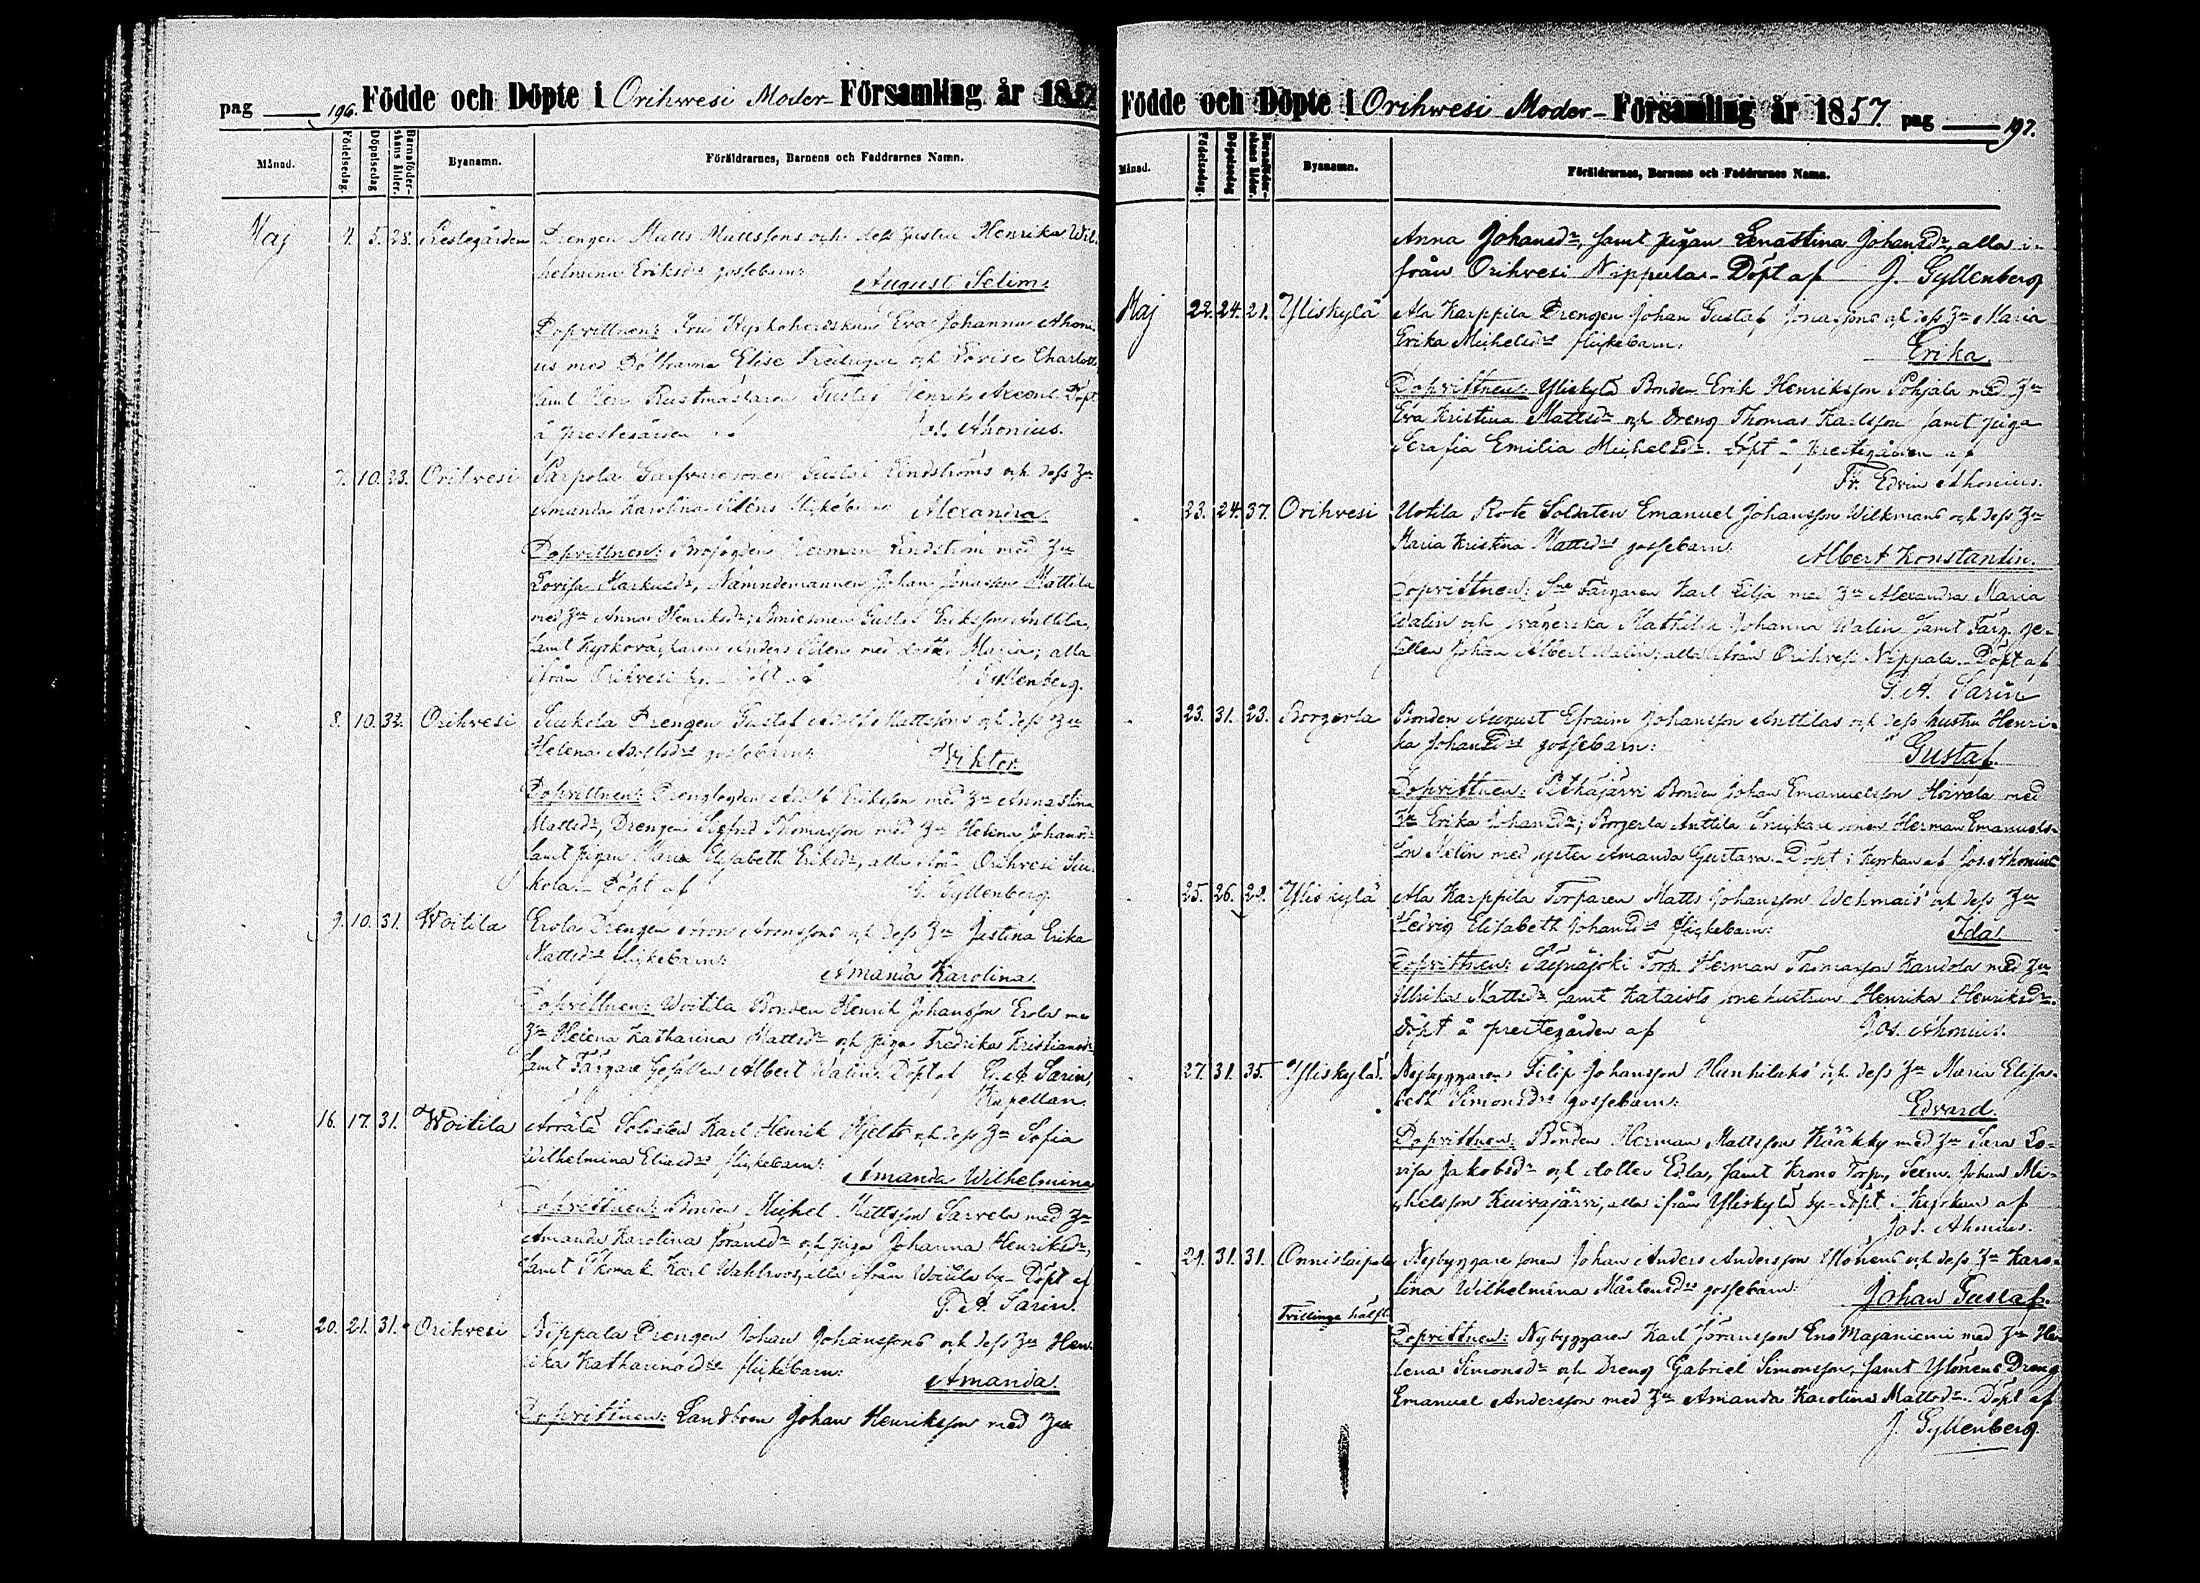 pag 196. Födde och Döpte i Orihwesi Moder- Församling år 1857
Månad. Födelsedag. Döpelsedag Barnaföder-skans ålder. Byanamn. Föräldrarnes, Barnens och Faddrarnes Namn.
Maj 4. 5. 28. Prestegården Drengen Matts Mattssons och dess hustru Henrika Wil-
helmina Eriksdrs gossebarn:
August Selim.
Dopvittnen: Fru Kyrkoherdskan Eva Johanna Ahoni-
us med Döttrarna Elise Fredrique och Lovise Charlotte
samt Herr Rustmästaren Gustaf Henrik Döpt
å prestegården af Jos. Ahonius.
7. 10. 23. Orihvesi Parpola Garfvaresonen Gustaf Lindströms och dess Hu
Amanda Karolina flickebarn Alexandra.
Dopvittnen: Herman Lindström med Hu
Lovisa Markusdr, Nämndemannen Johan Jonasson Mattila
med Hu Anna Henriksdr; Bondesonen Gustaf Eriksson Anttila,
samt Anders med dotter Maria, alla
ifrån Orihvesi by. Döpt af J. Gyllenberg.
8. 10. 32. Orihvesi Siukola Drengen Gustaf Mattssons och dess Hu
Helena Adolfsdrs gossebarn: Viktor.
Dopvittnen: Drengfogden Adolf Eriksson med Hu Annastina
Mattsdr, Drengen Sigfrid Thomasson med Hu Helena Johansdr
samt pigan Maria Elisabeth Eriksdr, alla ifrån Orihvesi Siu-
kola. Döpt af J. Gyllenberg.
9. 10. 31. Woitila Erola Drengen Aron Aronssons och dess Hu Justina Erika
Mattsdrs flickebarn:
Amanda Karolina.
Dopvittnen: Woitila Bonden Henrik Johansson Erola med
Hu Helena Katharina Mattsdr och piga Fredrika Kristiansdr
samt Färgare Gesällen Albert Walin. Döpt af G. A. Sarin,
Kapellan.
16. 17. 31. Woitila Arrälä Soldaten Karl Henrik Hjelts och dess Hu Sofia
Wilhelmina Eliasdrs flickebarn:
Amanda Wilhelmina
Dopvittnen: Bonden Michel Mattsson Sarvela med Hu
Amanda Karolina Göransdr och piga Johanna Henriksdr,
samt Skomak. Karl Wahlroos, alla ifrån Woitila by. Döpt af
G. A. Sarin.
20. 21. 31. Orihvesi Nippala Drengen Johan Johanssons och dess Hu Hen-
rika Katharina flickebarn:
Amanda.
Dopvittnen: Landboen Johan Henriksson med Hu
Födde och Döpte i Orihwesi Moder- Församling år 1857. pag 197.
Månad. Födelsedag. Döpelsedag Barnaföder-skans ålder. Byanamn. Föräldrarnes, Barnens och Faddrarnes Namn.
Anna Johansdr, samt pigan Lenastina Johansdr, alla i-
från Orihvesi Nippala - Döpt af J. Gyllenberg
Maj 22. 24. 21. Yliskylä Ala Karppila Drengen Johan Gustaf Jonassons och dess Hu Maria
Erika Michelsdrs flickebarn:
Erika.
Dopvittnen: Yliskylä Bonden Erik Henriksson Pohjala med Hu
Eva Kristina Mattsdr och Dreng Thomas Karlsson samt piga
Serafia Emilia Michelsdr. Döpt å prestegården af
Fr. Edvin Ahonius.
23. 24. 37. Orihvesi Uotila Rote Soldaten Emanuel Johansson Wilkmans och dess Hu
Maria Kristina Mattsdrs gossebarn:
Albert Konstantin.
Dopvittnen: Färgaren Karl Lilja med Hu Alexandra Maria
Walin och svägerska Mathilda Johanna Walin samt Färg. ge-
sällen Johan Albert Walin; alla ifrån Orihvesi Nippala. Döpt af
G. A. Sarin
23. 31. 23. Borgerla Bonden August Efraim Johansson Anttilas och dess hustru Henri-
ka Johansdrs gossebarn:
Gustaf.
Dopvittnen: Pitkäjärvi Bonden Johan Emanuelsson Hoivala med
Hu Erika Johansdr; Borgerla Anttila Snickare sonen Herman Emanuels-
son Melin med syster Amanda Gustava. Döpt i Kyrkan af Jos. Ahonius
25. 26. 29. Yliskylä Ala Karppila Torparen Matts Johansson Wehmais och dess Hu
Hedvig Elisabeth Johansdrs flickebarn:
Ida.
Dopvittnen: Säynäjoki Torp. Herman Thomasson Kandola med Hu
Ulrika Mattsdr samt Kataists sonehustrun Henrika Henriksdr.
Döpt å prestegården af Jos. Ahonius.
27. 31. 35. Yliskylä. Nybyggaren Filip Johansson Hunhilaks och dess Hu Maria Elisa-
beth Simonsdrs gossebarn:
Edvard.
Dopvittnen: Bonden Herman Mattsson Kääkky med Hu Sara Lo-
visa Jakobsdr och dotter Edla, samt Krono Torp. Sven. Johan Mi-
chelsson Kuivajärvi, alla ifrån Yliskylä by. - Döpt i Kyrkan af
Jos. Ahonius.
29. 31. 31. Onnistaipale Nybyggare sonen Johan Anders Andersson Ylönens och dess Hu Karo-
lina Wilhelmina Mårtensdrs gossebarn:
Johan Gustaf.
Trillinge hälft.
Dopvittnen: Nybyggaren Karl Göransson Eno Majaniemi med Hu He-
lena Simonsdr och Dreng Gabriel Simonsson, samt Ylönens Dreng
Emanuel Andersson med Hu Amanda Karolina Mattsdr. Döpt af
J. Gyllenberg.